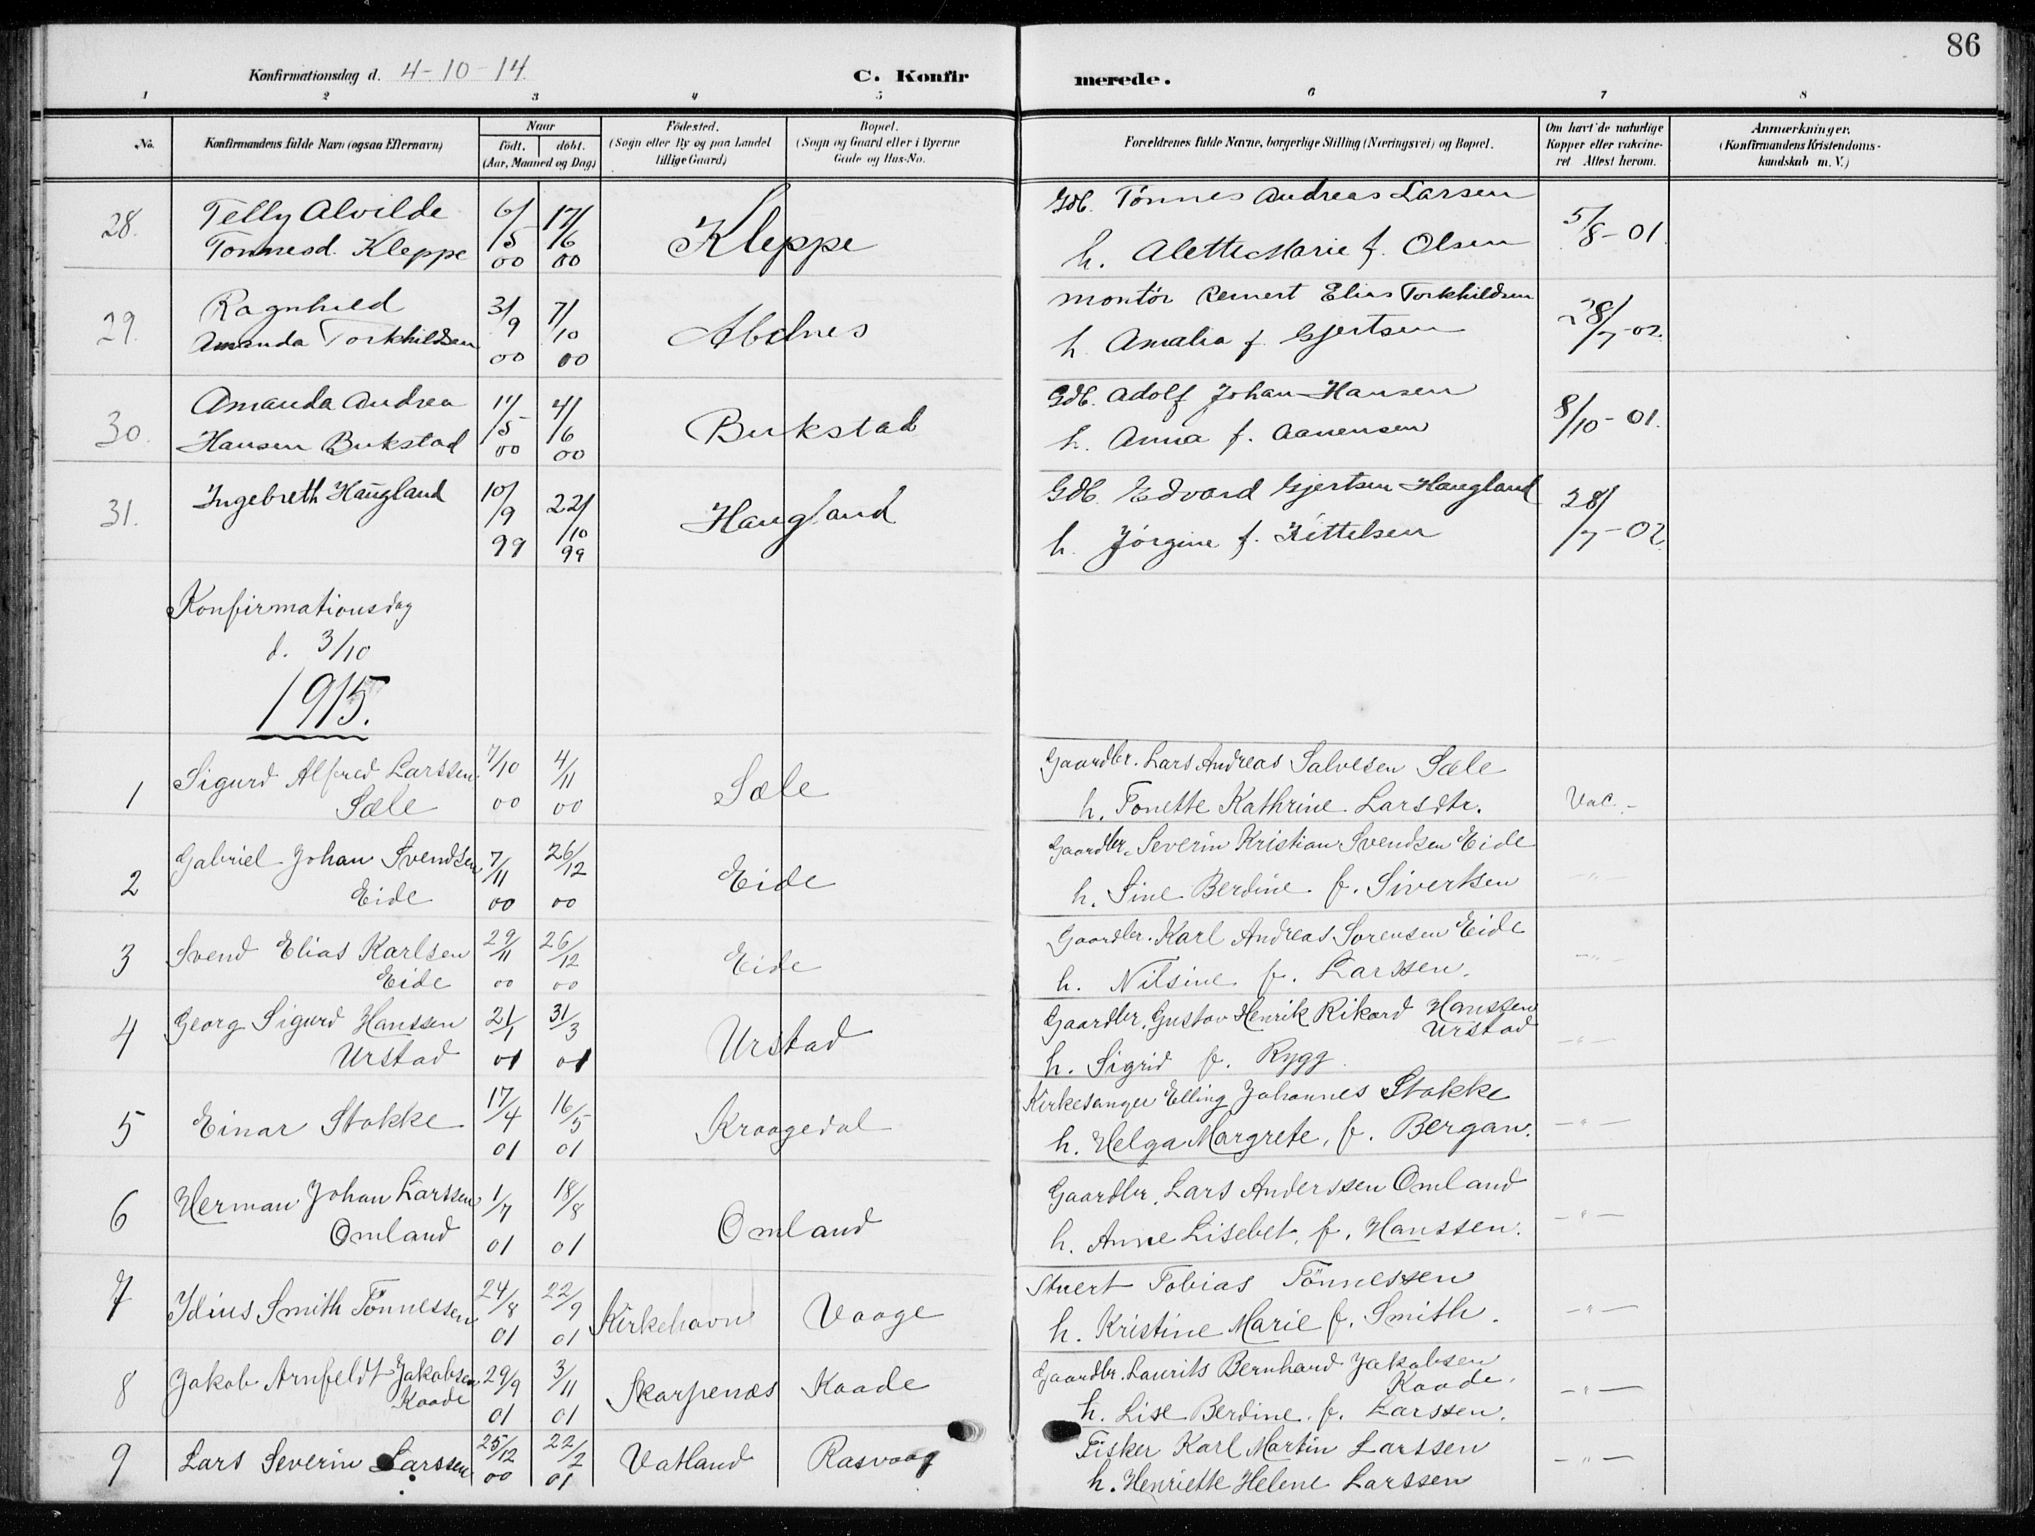 86
Konfirmationsdag d. 4-10-14
C. Konfir merede.
1 2 3 4 5 6 7 8
No.
Konfirmandens fulde Navn (ogsaa Efternavn)
Naar
født. døbt.
(Aar, Maaned og Dag)
Fødested.
(Sogn eller By og paa Landet
tillige Gaard)
Bopæl.
(Sogn og Gaard eller i Byerne
Gade og Hus-No.
Forældrenes fulde Navne, borgerlige Stilling (Næringsvei) og Bopæl.
Om havt de naturlige
Kopper eller vakcine-
ret Attest herom.
Anmærkninger.
(Konfirmandens Kristendoms-
kundskab m. V.)
28. Telly Alvilde 6/5 00 17/6 00 Kleppe Gdb. Tønnes Andreas Larsen 5/8-01
Tønnesd. Kleppe h. Alette Marie f. Olsen
29. Ragnhild 3/9 00 7/10 00 Abelnes Montør Reinert Elias Torkhildsen 28/7-02.
Amanda Torkhildsen h. Amalia f. Gjertsen
30. Amanda Andrea 11/5 00 4/6 00 Bukstad Gdb. Adolf Johan Hansen 8/10-01.
Hansen Bukstad h. Anna f. Aanensen
31. Ingebreth Haugland 10/9 99 22/10 99 Haugland Gdb. Edvard Gjertsen Haugland 28/7-02.
h. Jørgine f. Kittelsen
Konfirmationsdag
d. 3/10
1915.
1 Sigurd Alfred Larssen 7/10 00 4/11 00 Sæle Gaardbr. Lars Andreas Salvesen Sæle
Sæle h. Tonette Kathrine Larsdtr. Vac.-
2 Gabriel Johan Svendsen 7/11 00 26/12 00 Eide Gaardbr. Severin Kristian Svendsen Eide
Eide h. Sine Berdine f. Sivertsen -"-
3 Svend Elias Karlsen 29/11 00 26/12 00 Eide Gaardbr. Karl Andreas Sørensen Eide
Eide h. Nilsine f. Larssen. -"-
4 Georg Sigurd Hanssen 21/1 01 31/3 01 Urstad Gaardbr. Gustav Henrik Rikard Hanssen
Urstad
Urstad h. Sigrid f. Rygg. -"-
5 Einar Stakke 17/4 01 16/5 01 Kraagedal Kirkesanger Elling Johannes Stakke
h. Helga Margrete, f. Bergan. -"-
6 Herman Johan Larssen 1/7 01 18/8 01 Omland Gaardbr. Lars Anderssen Omland
Omland h. Anne Lisebet, f. Hanssen. -"-
7 Idius Smith Tönnessen 24/8 01 22/9 01 Kirkehavn Vaage Stuert Tobias Tönnessen
h. Kristine Marie f. Smith. -"-
8 Jakob Arnfeldt Jakobsen 29/9 01 3/11 01 Skarpenæs Kaade Gaardbr. Laurits Bernhard Jakobsen
Kaade Kaade.
h. Lise Berdine f. Larssen. -"-
9 Lars Severin Larssen 25/12 00 22/2 01 Vatland Rasvaag Fisker Karl Martin Larssen
h. Henriette Helene Larssen -"-